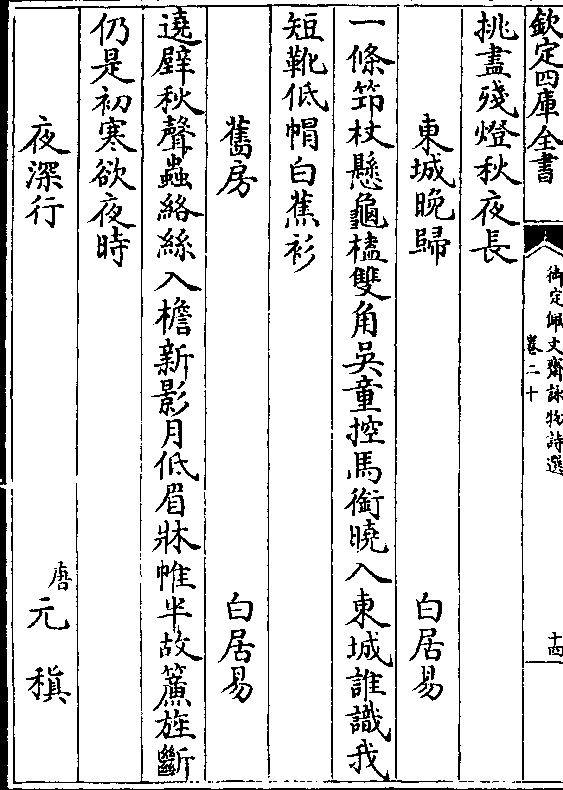 欽定四庫全書
御定佩文齋詠物詩選
卷二十
十四
挑盡殘燈秋夜長
東城晚歸 白居易
一條筇杖懸龜榼雙角吳童控馬銜曉入東城誰識我
短靴低帽白蕉衫
舊房 白居易
遶壁秋聲蟲絡絲入檐新影月低眉牀帷半故簾旌斷
仍是初寒欲夜時
夜深行 唐 元稹